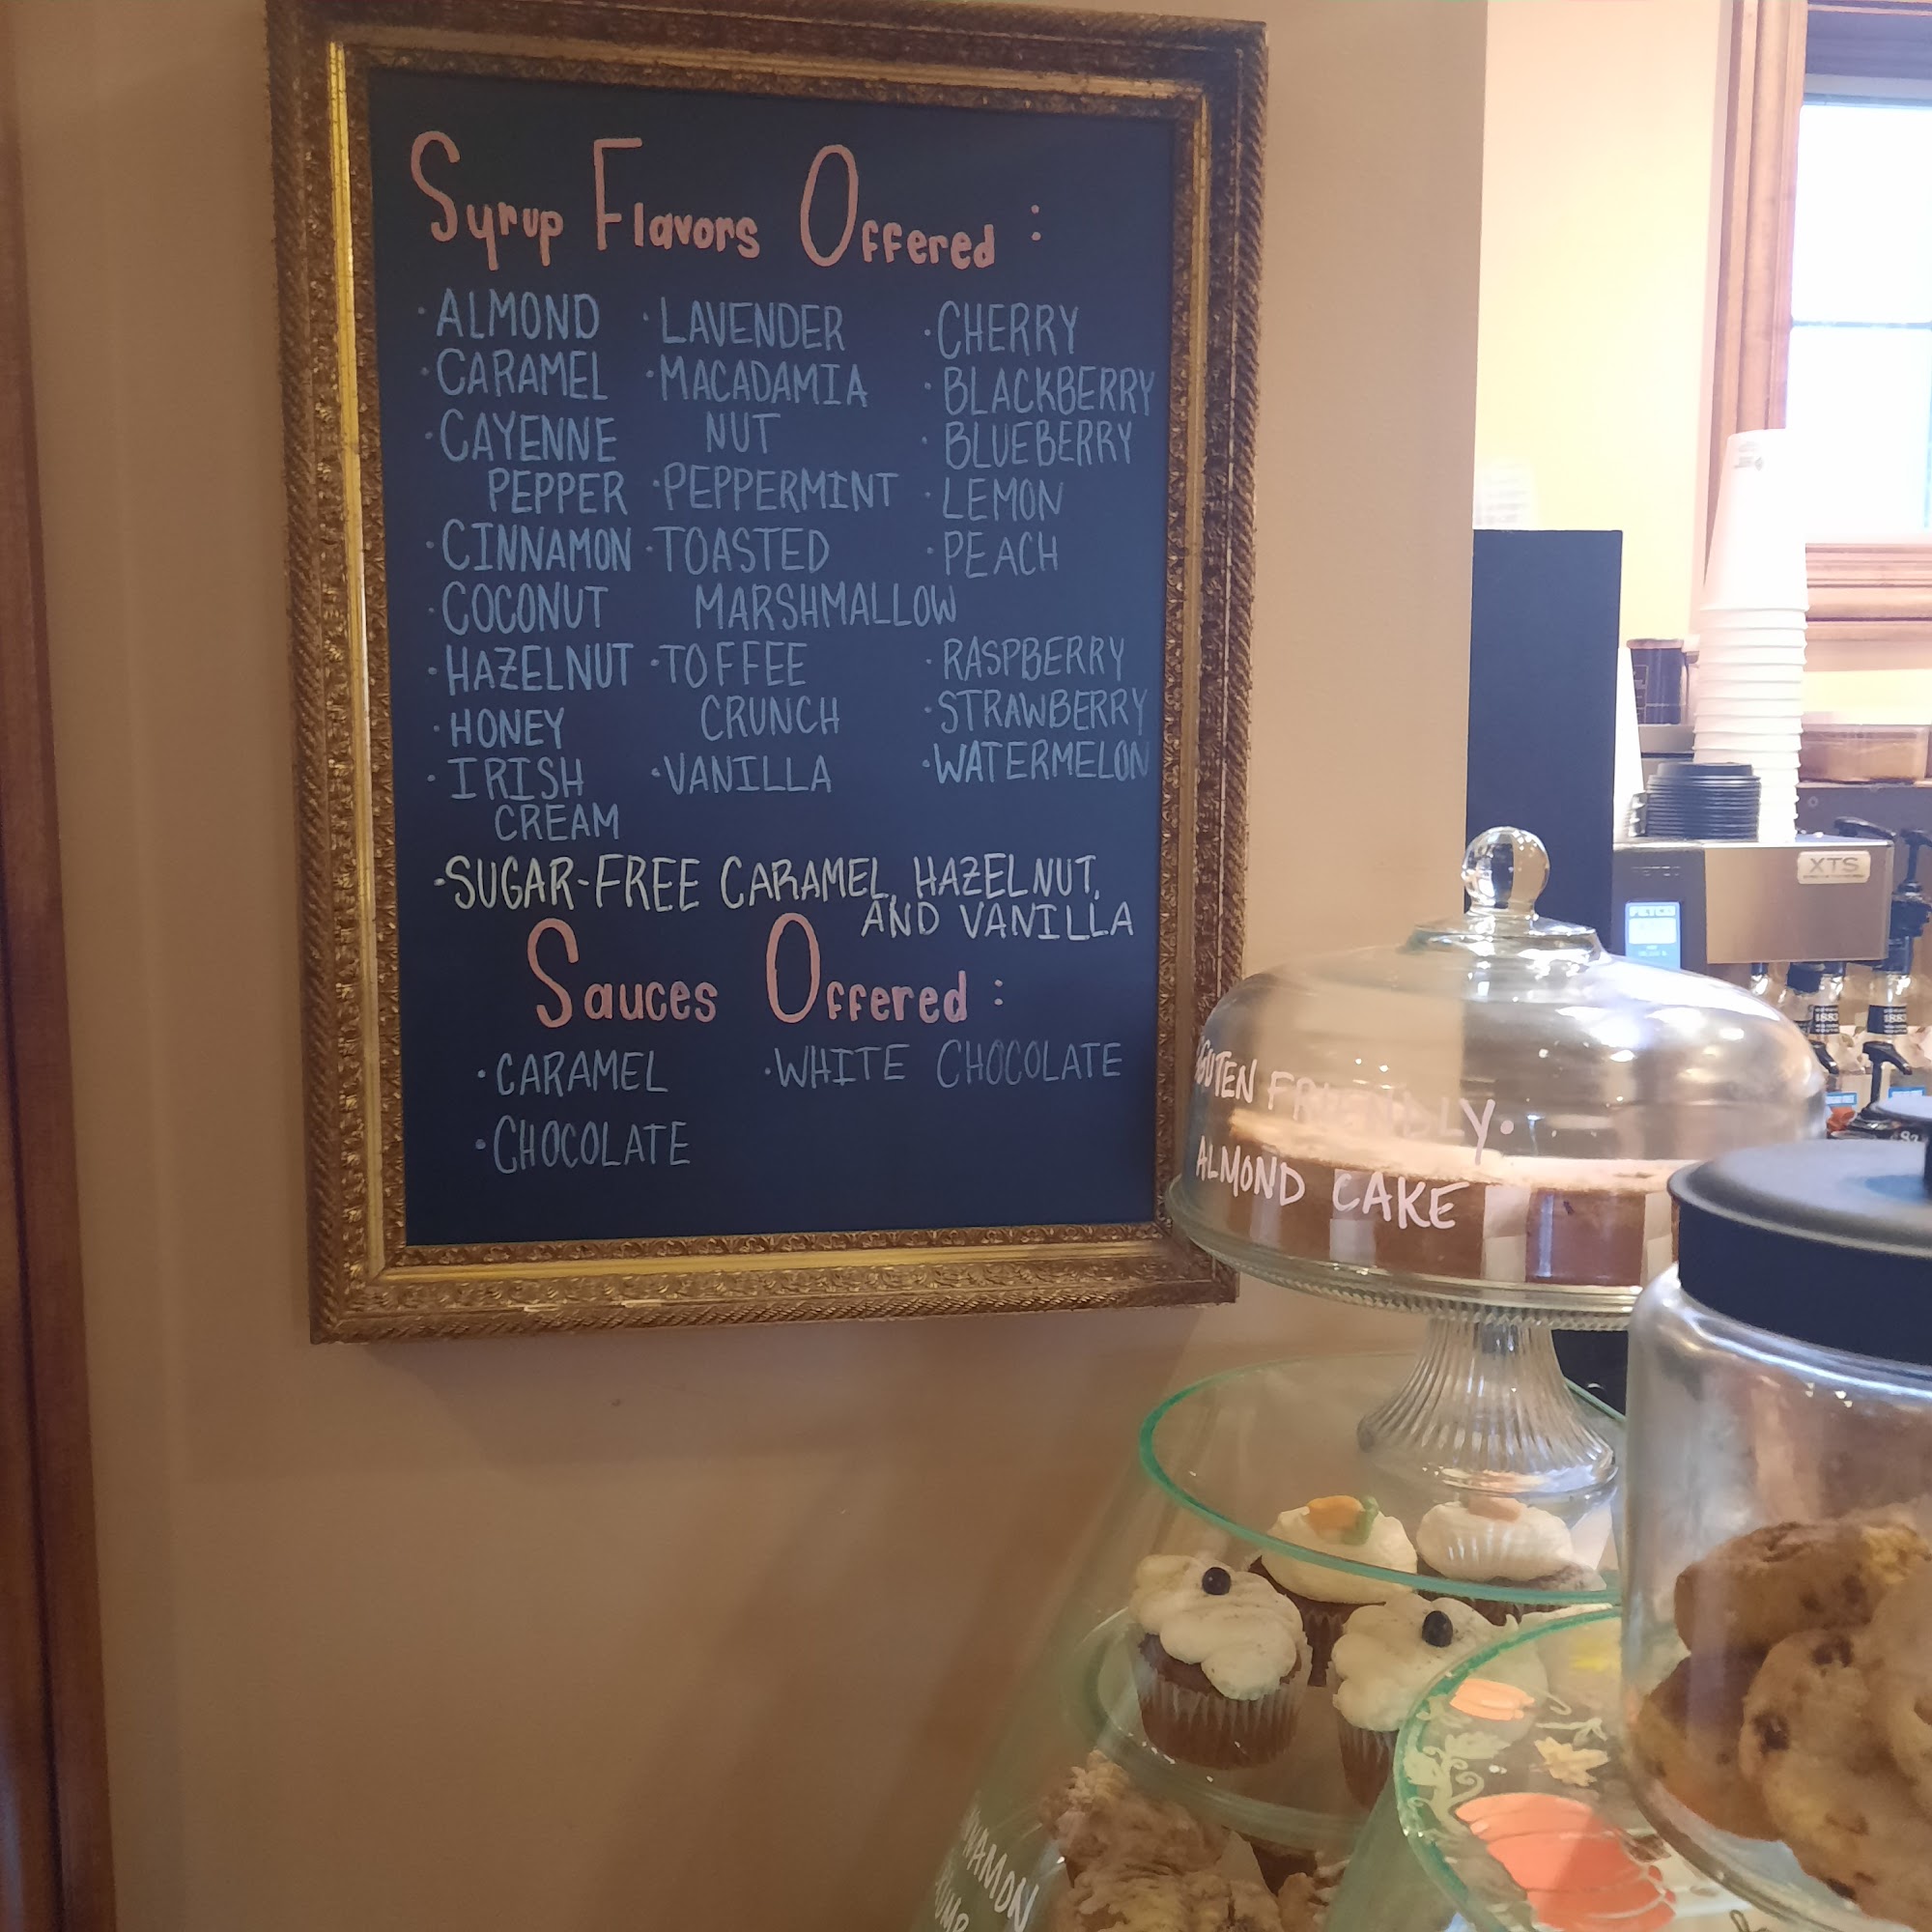 Syrup Flavors Offered :
·ALMOND
·CARAMEL
·CAYENNE
PEPPER
·CINNAMON
·COCONUT
·HAZELNUT
·HONEY
·IRISH
CREAM
·LAVENDER
·MACADAMIA
NUT
·PEPPERMINT
·TOASTED
MARSHMALLOW
·TOFFEE
CRUNCH
·VANILLA
·CHERRY
·BLACKBERRY
·BLUEBERRY
·LEMON
·PEACH
·RASPBERRY
·STRAWBERRY
·WATERMELON
·SUGAR-FREE CARAMEL, HAZELNUT,
AND VANILLA
Sauces Offered :
·CARAMEL
·CHOCOLATE
·WHITE CHOCOLATE
FRIENDLY·
ALMOND CAKE
XTS
FETCO
1883
1883